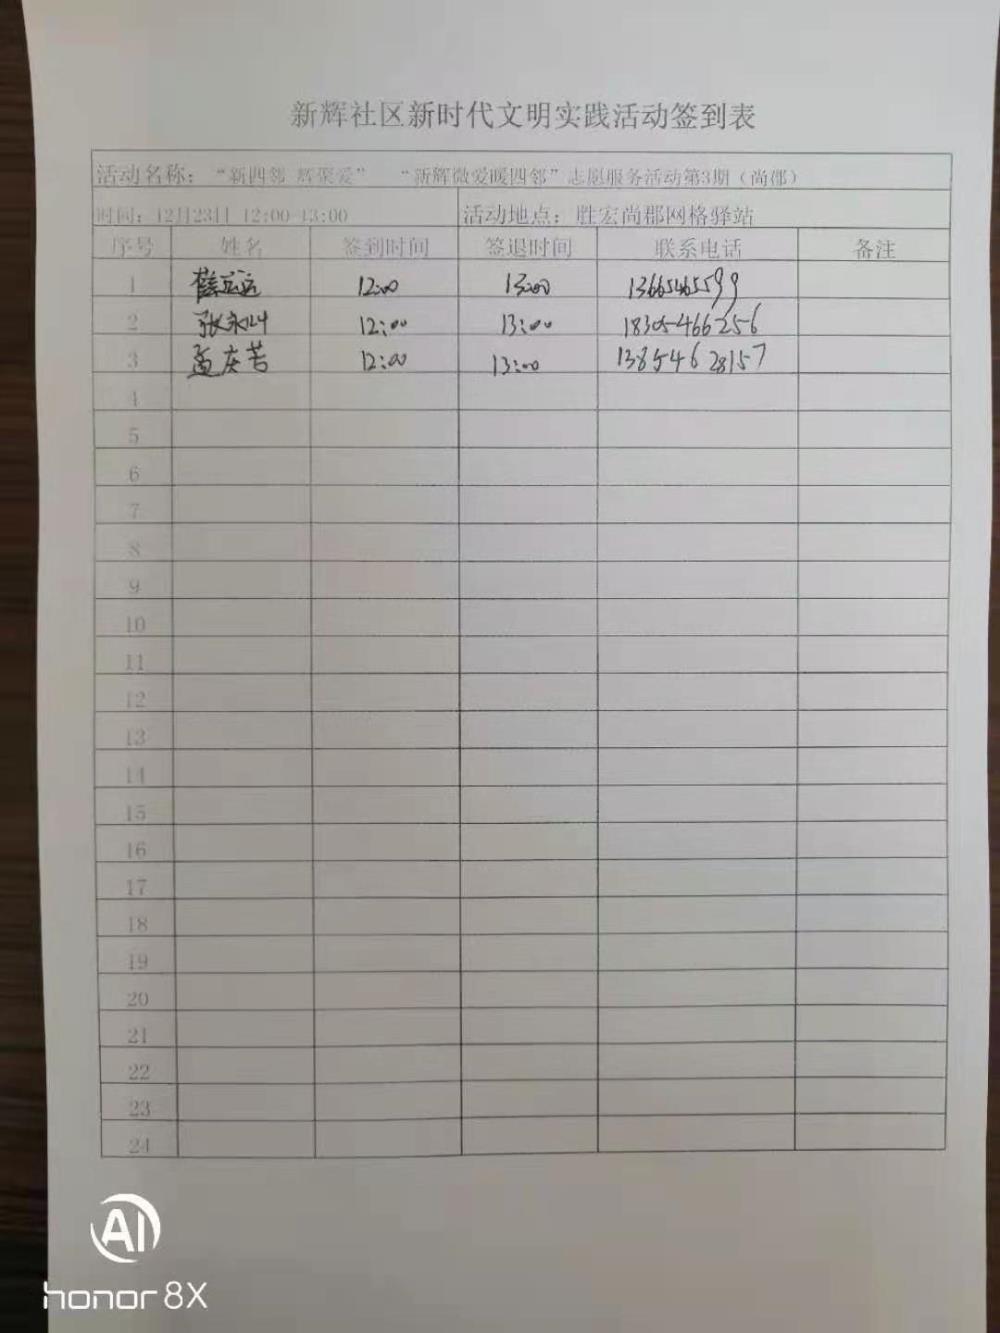 新辉社区新时代文明实践活动签到表
活动名称：“新四邻 辉聚爱” “新辉微爱暖四邻”志愿服务活动第3期（尚郡）
时间：12月23日 12:00-13:00 活动地点：胜宏尚郡网格驿站
序号 姓名 签到时间 签退时间 联系电话 备注
1 12:00 13:00 13665465599
2 张永 12:00 13:00 18305466256
3 孟庆芳 12:00 13:00 13854628157
4
5
6
7
8
9
10
11
12
13
14
15
16
17
18
19
20
21
22
23
24
AI
honor 8X